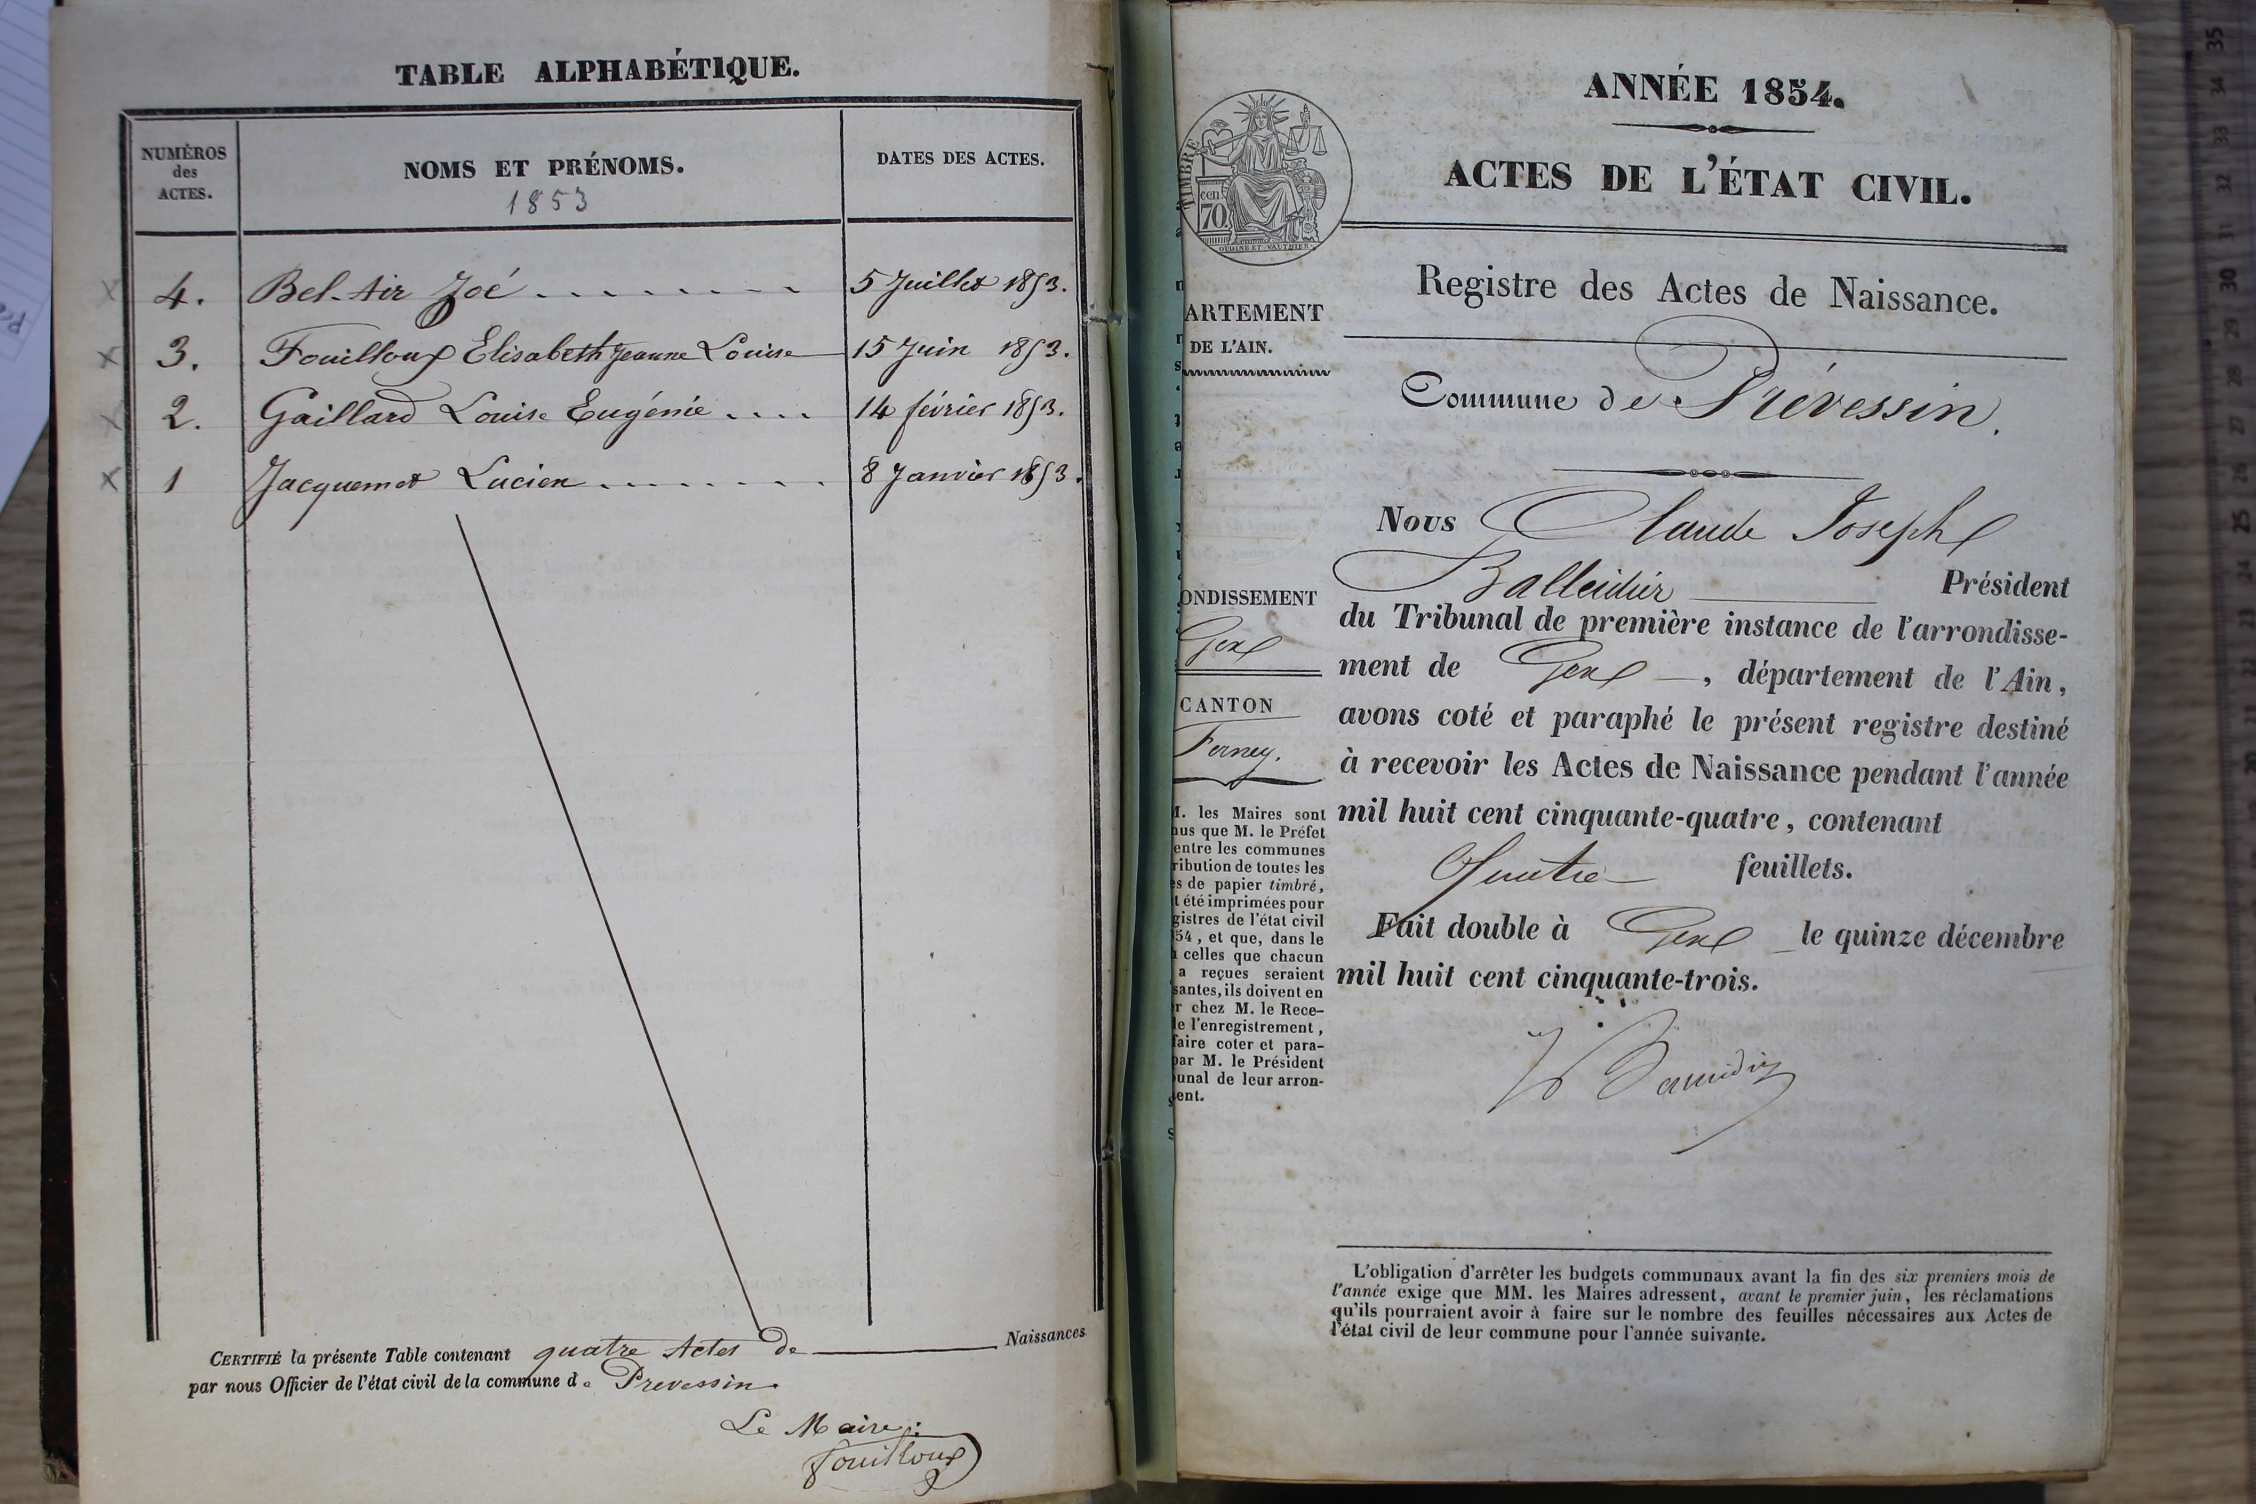 TABLE ALPHABÉTIQUE.
NUMÉROS
des
ACTES.
NOMS ET PRÉNOMS.
1853
DATES DES ACTES.
4. Bel-Air Zoé 5 Juillet 1853.
3. Fouilloux Elisabeth Jeanne Louise 15 Juin 1853.
2. Gaillard Louise Eugénie 14 février 1853.
1 Jacquemet Lucien 8 Janvier 1853.
CERTIFIÉ la présente Table contenant quatre Actes de Naissances
par nous Officier de l'état civil de la commune de Prevessin.
Le Maire:
Fouilloux
ANNÉE 1854.
ACTES DE L'ÉTAT CIVIL.
TIMBRE
cen.
70.
Registre des Actes de Naissance.
ARTEMENT
DE L'AIN.
Commune de Prévessin.
Nous Claude Joseph
Balleidier Président
du Tribunal de première instance de l'arrondisse-
ment de Gex, département de l'Ain,
avons coté et paraphé le présent registre destiné
à recevoir les Actes de Naissance pendant l'année
mil huit cent cinquante-quatre, contenant
Quatre feuillets.
Fait double à Gex le quinze décembre
mil huit cent cinquante-trois.
ONDISSEMENT
Gex
CANTON
Ferney.
M. les Maires sont
nus que M. le Préfet
entre les communes
ribution de toutes les
es de papier timbré,
t été imprimées pour
gistres de l'état civil
54, et que, dans le
celles que chacun
a reçues seraient
santes, ils doivent en
r chez M. le Rece-
le l'enregistrement,
faire coter et para-
par M. le Président
unal de leur arron-
ent.
L'obligation d'arrêter les budgets communaux avant la fin des six premiers mois de
l'année exige que MM. les Maires adressent, avant le premier juin, les réclamations
qu'ils pourraient avoir à faire sur le nombre des feuilles nécessaires aux Actes de
l'état civil de leur commune pour l'année suivante.